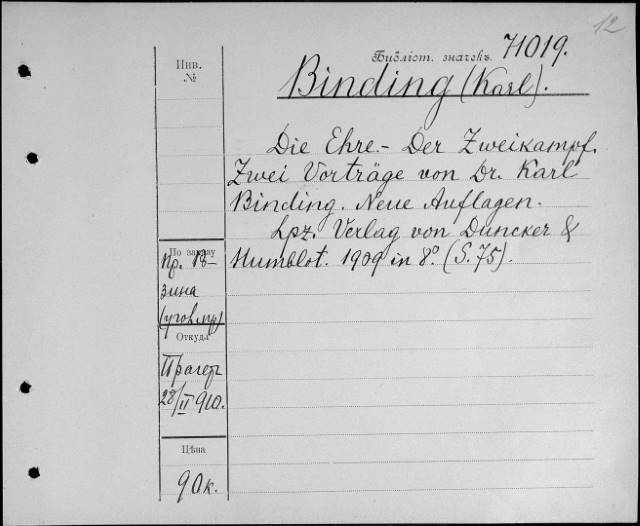 12
Инв.
№
Библіот. значекъ 71019.
Binding (Karl).
Die Ehre.- Der Zweikampf.
Zwei Vorträge von Dr. Karl
Binding. Neue Auflagen.
Lpz. Verlag von Duncker &
Humblot. 1909 in 8° (S. 75).
По заказу
Пр.
зина
Откуда
Прагеръ
28/II 910.
Цѣна
90 к.